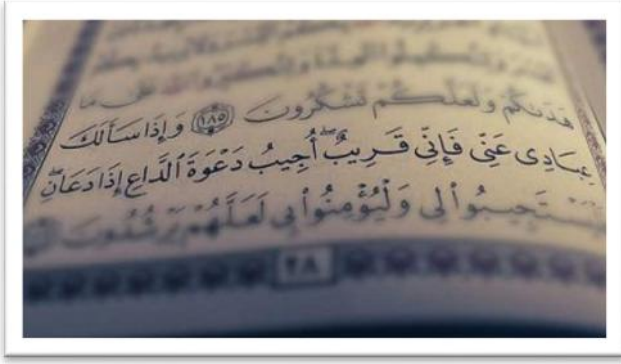 هَدَىٰكُمْ وَلَعَلَّكُمْ تَشْكُرُونَ ۝١٨٥ وَإِذَا سَأَلَكَ
عِبَادِى عَنِّى فَإِنِّى قَرِيبٌۖ أُجِيبُ دَعْوَةَ ٱلدَّاعِ إِذَا دَعَانِۖ
فَلْيَسْتَجِيبُوا۟ لِى وَلْيُؤْمِنُوا۟ بِى لَعَلَّهُمْ يَرْشُدُونَ
٢٨